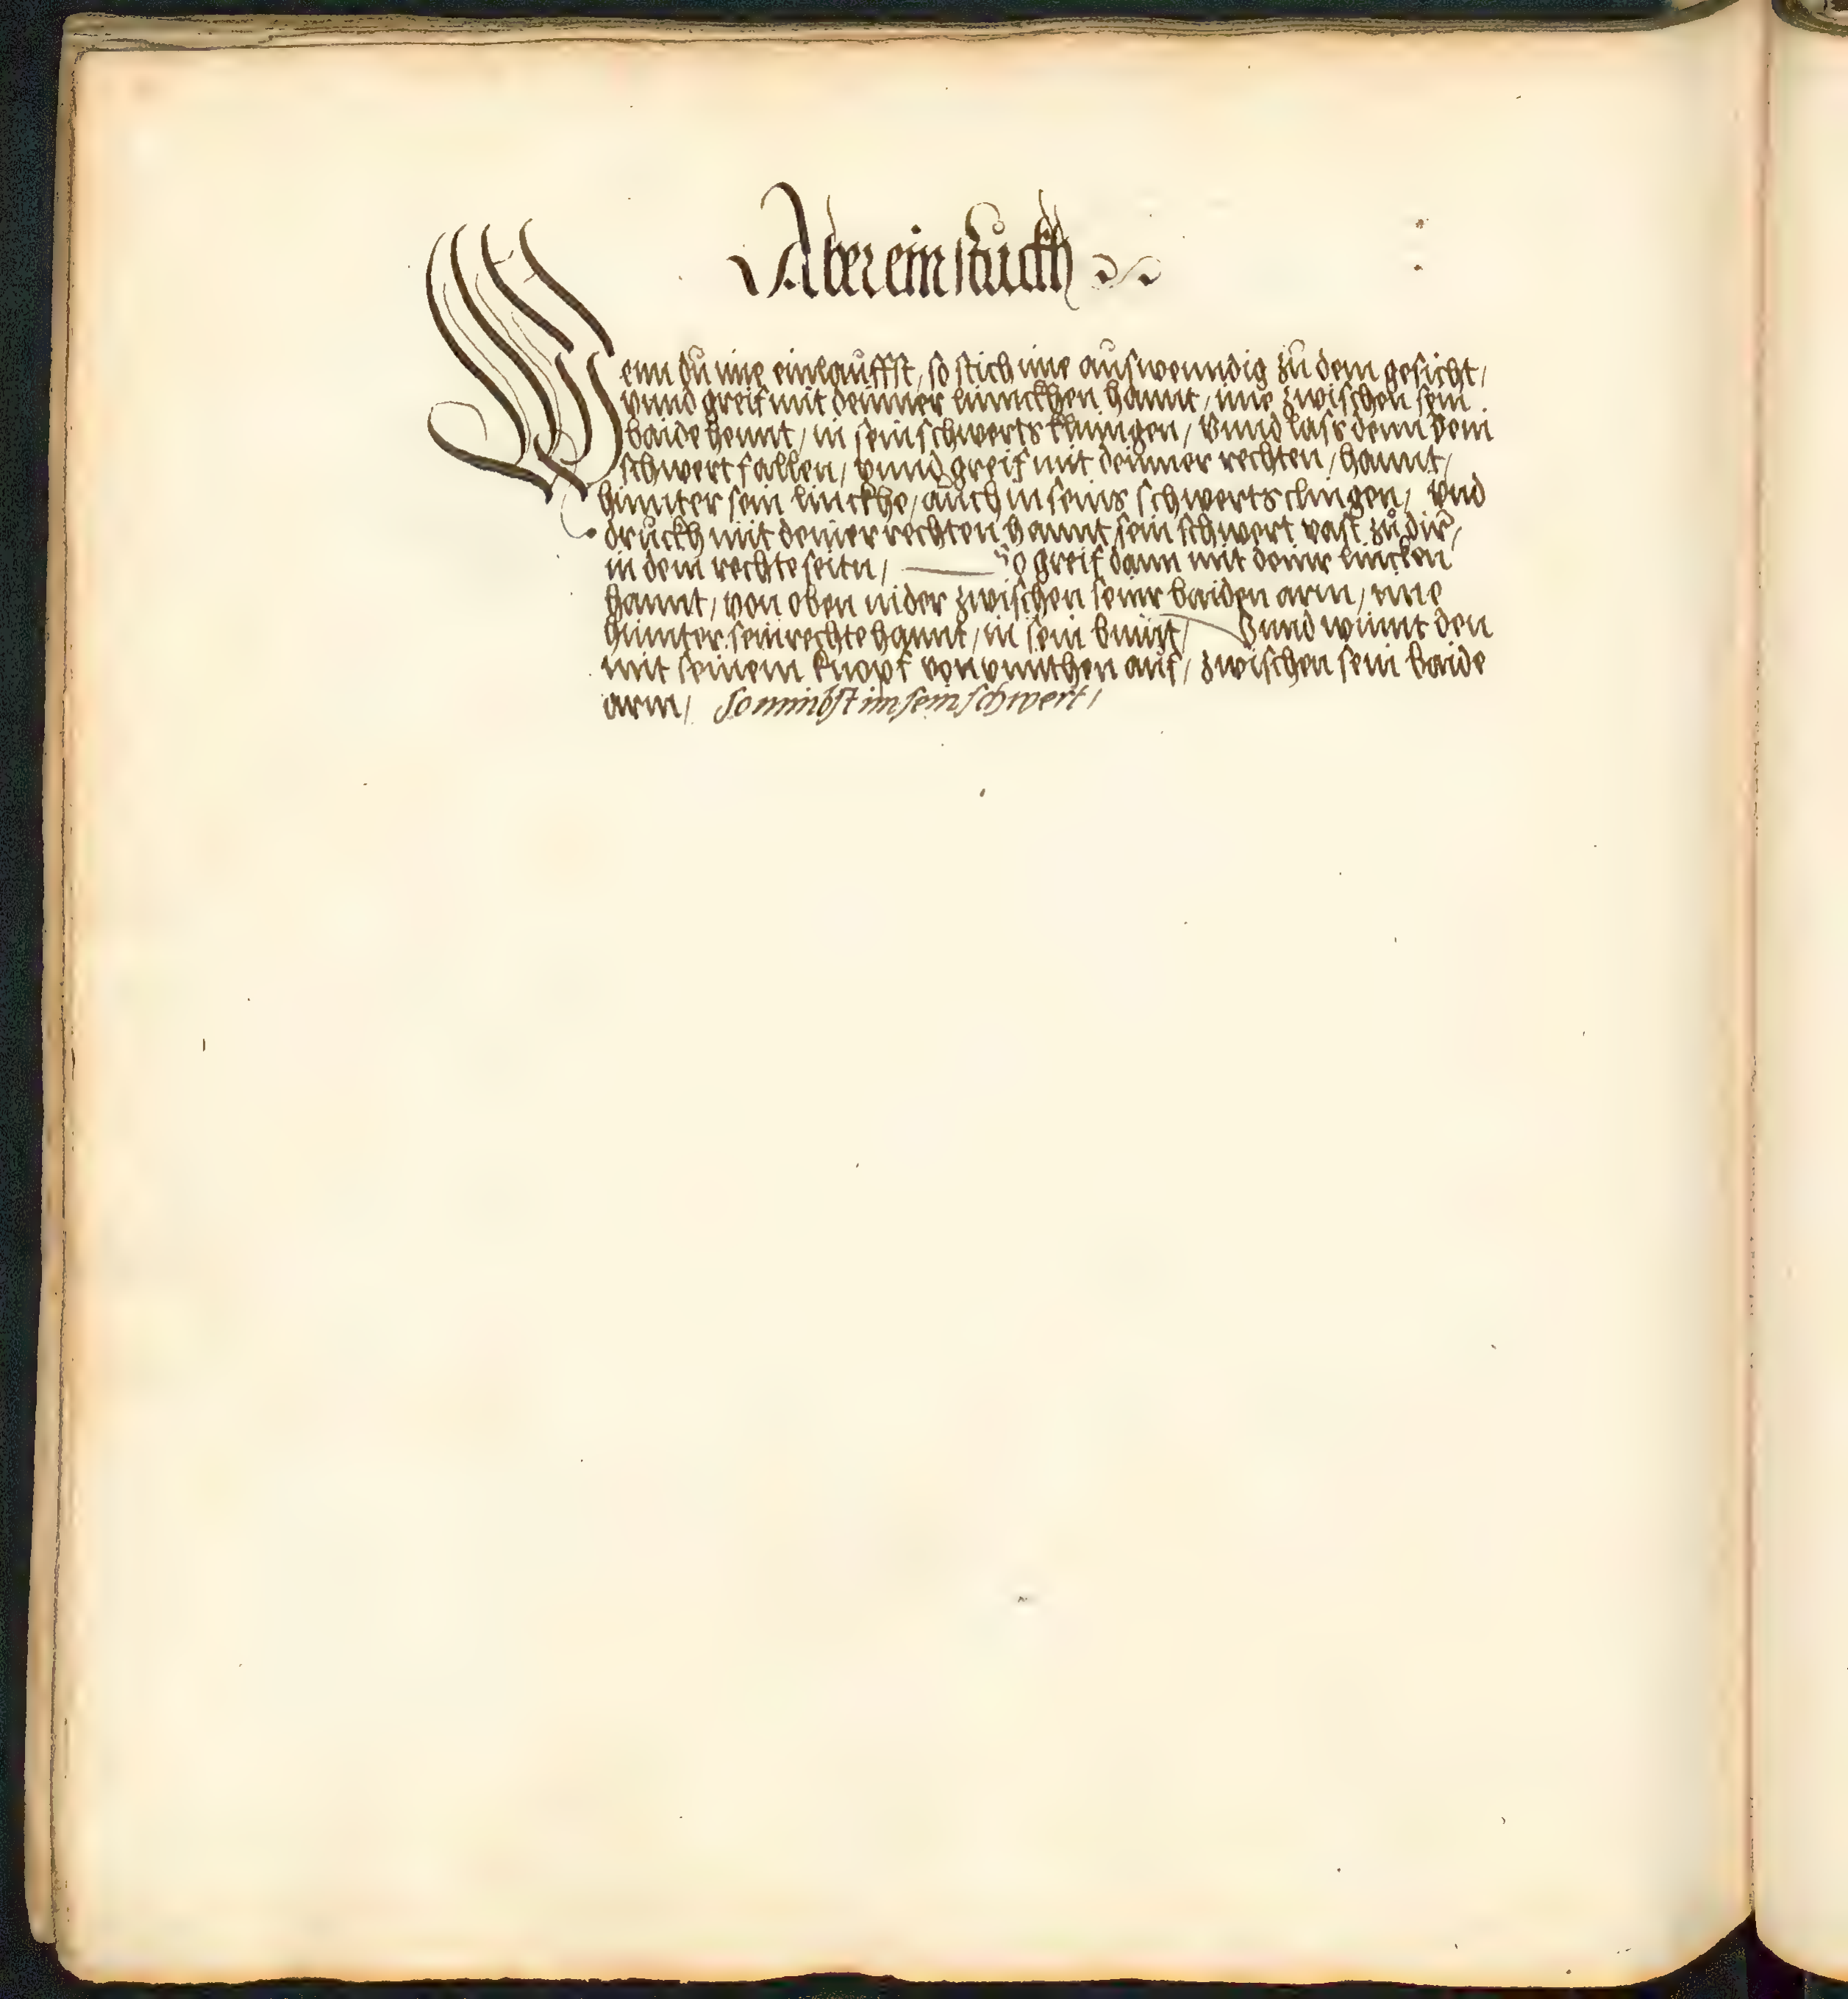 Aber ein stuckh
Wenn du ime einlauffst, so stich ime auswenndig zu dem gesicht,
vnnd greif mit deinner linnckhen hannt, ime zwischen sein
baide hennt, in sein schwerts klingen, Vnnd lass denn dein
schwert fallen, vnnd greif mit deinner rechten, hannt,
hinnter sein linckhe, auch in seins schwerts clingen, vnd
druckh mit deiner rechten hannt sein schwert vast zů dir,
in dein rechte seitn, So greif dann mit deinr lincken
hannt, von oben nider zwischen seinr baiden arm, ime
hinnter sein rechte hannt, in sein bünt, Vnnd winnt den
mit seinem knopf von vnnthen auf, zwischen sein baide
arm, so nimbst im sein schwert,